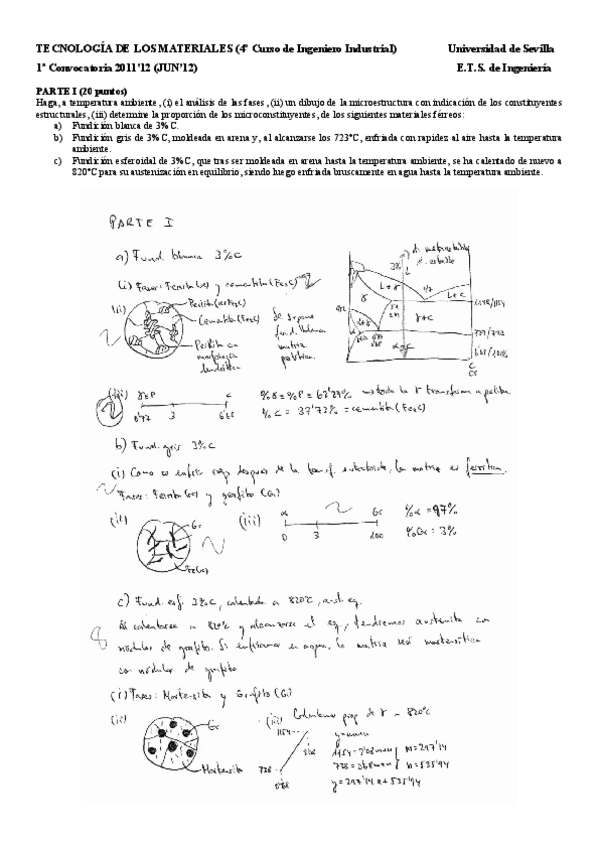 TECNOLOGÍA DE LOS MATERIALES (4º Curso de Ingeniero Industrial) Universidad de Sevilla
1ª Convocatoria 2011'12 (JUN'12) E.T.S. de Ingeniería
PARTE I (20 puntos)
Haga, a temperatura ambiente, (i) el análisis de las fases, (ii) un dibujo de la microestructura con indicación de los constituyentes
estructurales, (iii) determine la proporción de los microconstituyentes, de los siguientes materiales férreos:
a) Fundición blanca de 3% C.
b) Fundición gris de 3% C, moldeada en arena y, al alcanzarse los 723°C, enfriada con rapidez al aire hasta la temperatura
ambiente.
c) Fundición esferoidal de 3%C, que tras ser moldeada en arena hasta la temperatura ambiente, se ha calentado de nuevo a
820°C para su austenización en equilibrio, siendo luego enfriada bruscamente en agua hasta la temperatura ambiente.
PARTE I
a) Fund. blanca 3%C
(i) Fases: Ferrita (α) y cementita (Fe3C)
d. metaestable
d. estable
3%
L
L+γ
L+C
γ
γ+C
1148/1154
α+C
(ii)
Perlita (α+Fe3C)
Cementita (Fe3C)
Perlita en
morfología
dendrítica
Se supone
fund. blanca
matriz
perlítica.
(iii) γ≡P C
0'77 3 6'67
%γ = %P = 62'29% toda la γ transforma a perlita
%C = 37'73% = cementita (Fe3C)
b) Fund. gris 3%C
(i) Como se enfría rap. después de la transf. eutectoide, la matriz es ferrítica.
Fases: Ferrita (α) y grafito (Gr)
(ii) Gr
Fe(α)
(iii) α Gr
0 3 100
%α = 97%
%Gr = 3%
c) Fund. esf. 3%C, calentada a 820°C, aust. eq.
Al calentarse a 820°C y alcanzarse el eq., tendremos austenita con
nódulos de grafito. Si enfriamos en agua, la matriz será martensítica
con nódulos de grafito
8
(i) Fases: Martensita y Grafito (Gr)
(ii) Gr
Martensita
(iii) Calculamos prop de γ a 820°C
1154
2'08
738
0'68
y=mx+n
1154 = 2'08m+n
738 = 0'68m+n
m=297'14
n=535'94
y = 297'14x+535'94